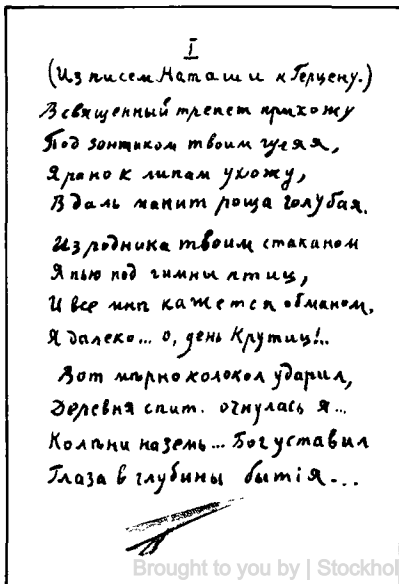 I
(Из писем Наташи к Герцену.)
В священный трепет прихожу
Под зонтиком твоим гуляя,
Я рано к липам ухожу,
В даль манит роща голубая.
Из родника твоим стаканом
Я пью под гимны птиц,
И все мнѣ кажется обманом,
Я далеко... о, день Крутиц!..
Вот мѣрно колокол ударил,
Деревня спит. очнулась я...
Колѣни наземь... Бог уставил
Глаза в глубины бытія...
Brought to you by | Stockhol